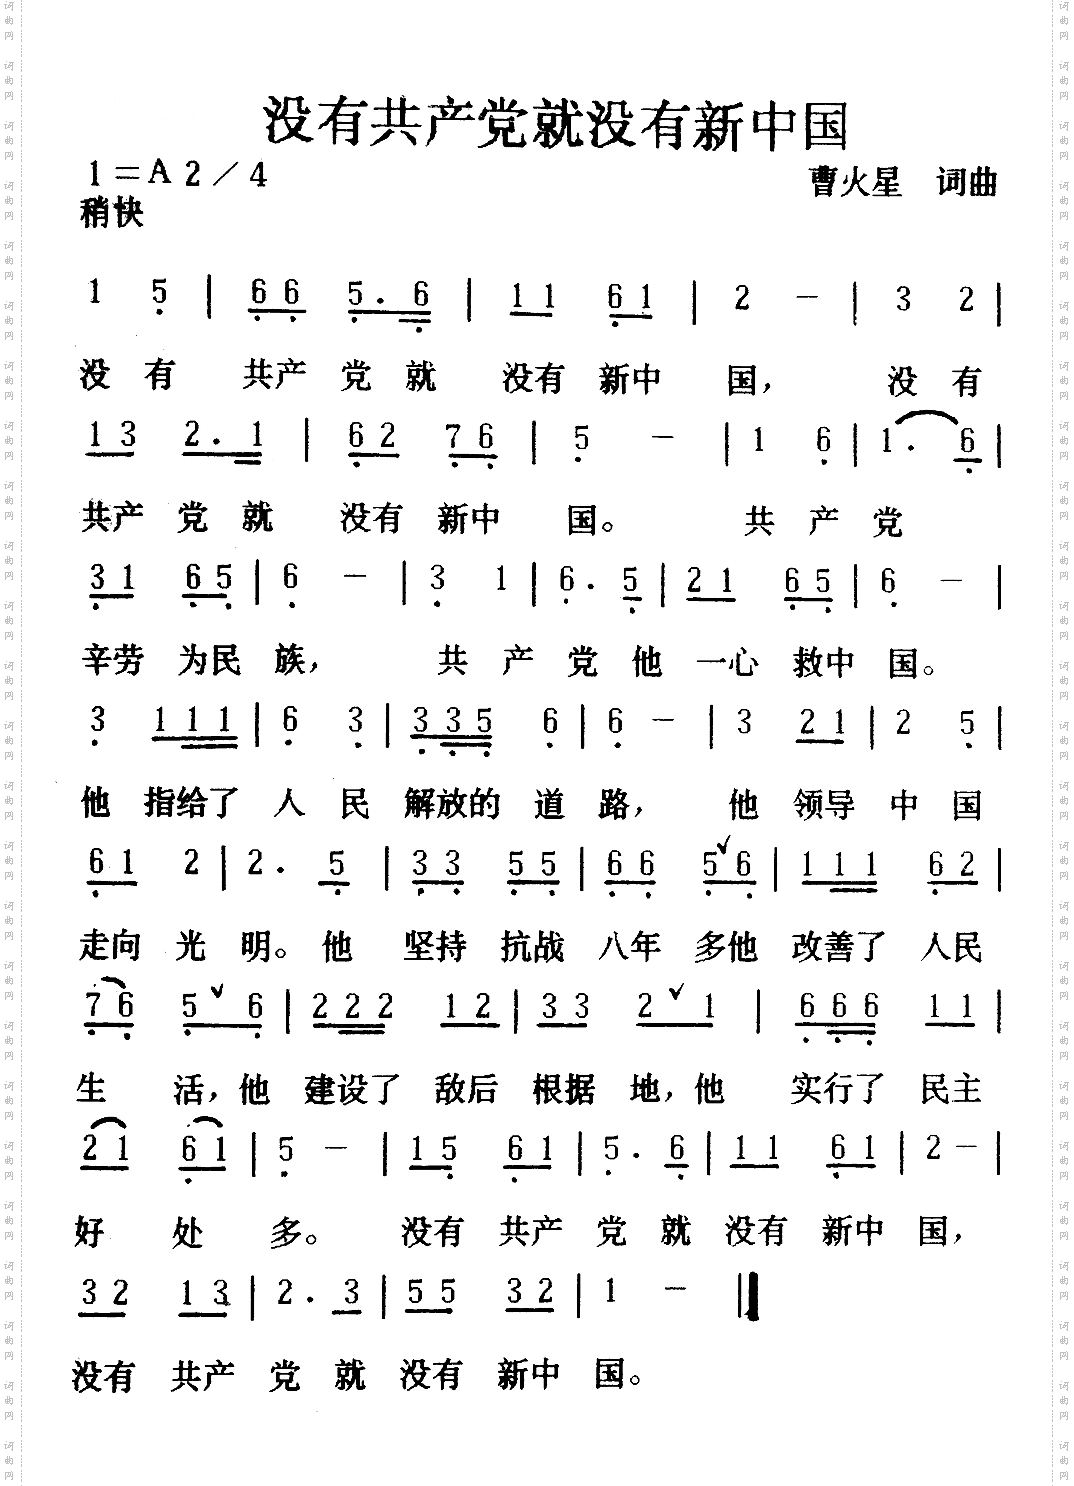 没有共产党就没有新中国
1=A 2/4
曹火星 词曲
稍快
1 5 | 6 6 5. 6 | 1 1 6 1 | 2 － | 3 2 |
没有 共产 党就 没有 新中 国， 没有
1 3 2. 1 | 6 2 7 6 | 5 － | 1 6 | 1. 6 |
共产 党就 没有 新中 国。 共产党
3 1 6 5 | 6 － | 3 1 | 6. 5 | 2 1 6 5 | 6 － |
辛劳 为民 族， 共产党他 一心 救中 国。
3 1 1 1 | 6 3 | 3 3 5 6 | 6 － | 3 2 1 | 2 5 |
他 指给了 人民 解放的 道路， 他 领导 中国
6 1 2 | 2. 5 | 3 3 5 5 | 6 6 5 ✓ 6 | 1 1 1 6 2 |
走向 光明。他 坚持 抗战 八年 多他 改善了 人民
7 6 5 ✓ 6 | 2 2 2 1 2 | 3 3 2 ✓ 1 | 6 6 6 1 1 |
生 活，他 建设了 敌后 根据 地，他 实行了 民主
2 1 6 1 | 5 － | 1 5 6 1 | 5. 6 | 1 1 6 1 | 2 － |
好 处 多。 没有 共产 党就 没有 新中 国，
3 2 1 3 | 2. 3 | 5 5 3 2 | 1 － ‖
没有 共产 党就 没有 新中 国。
词曲网